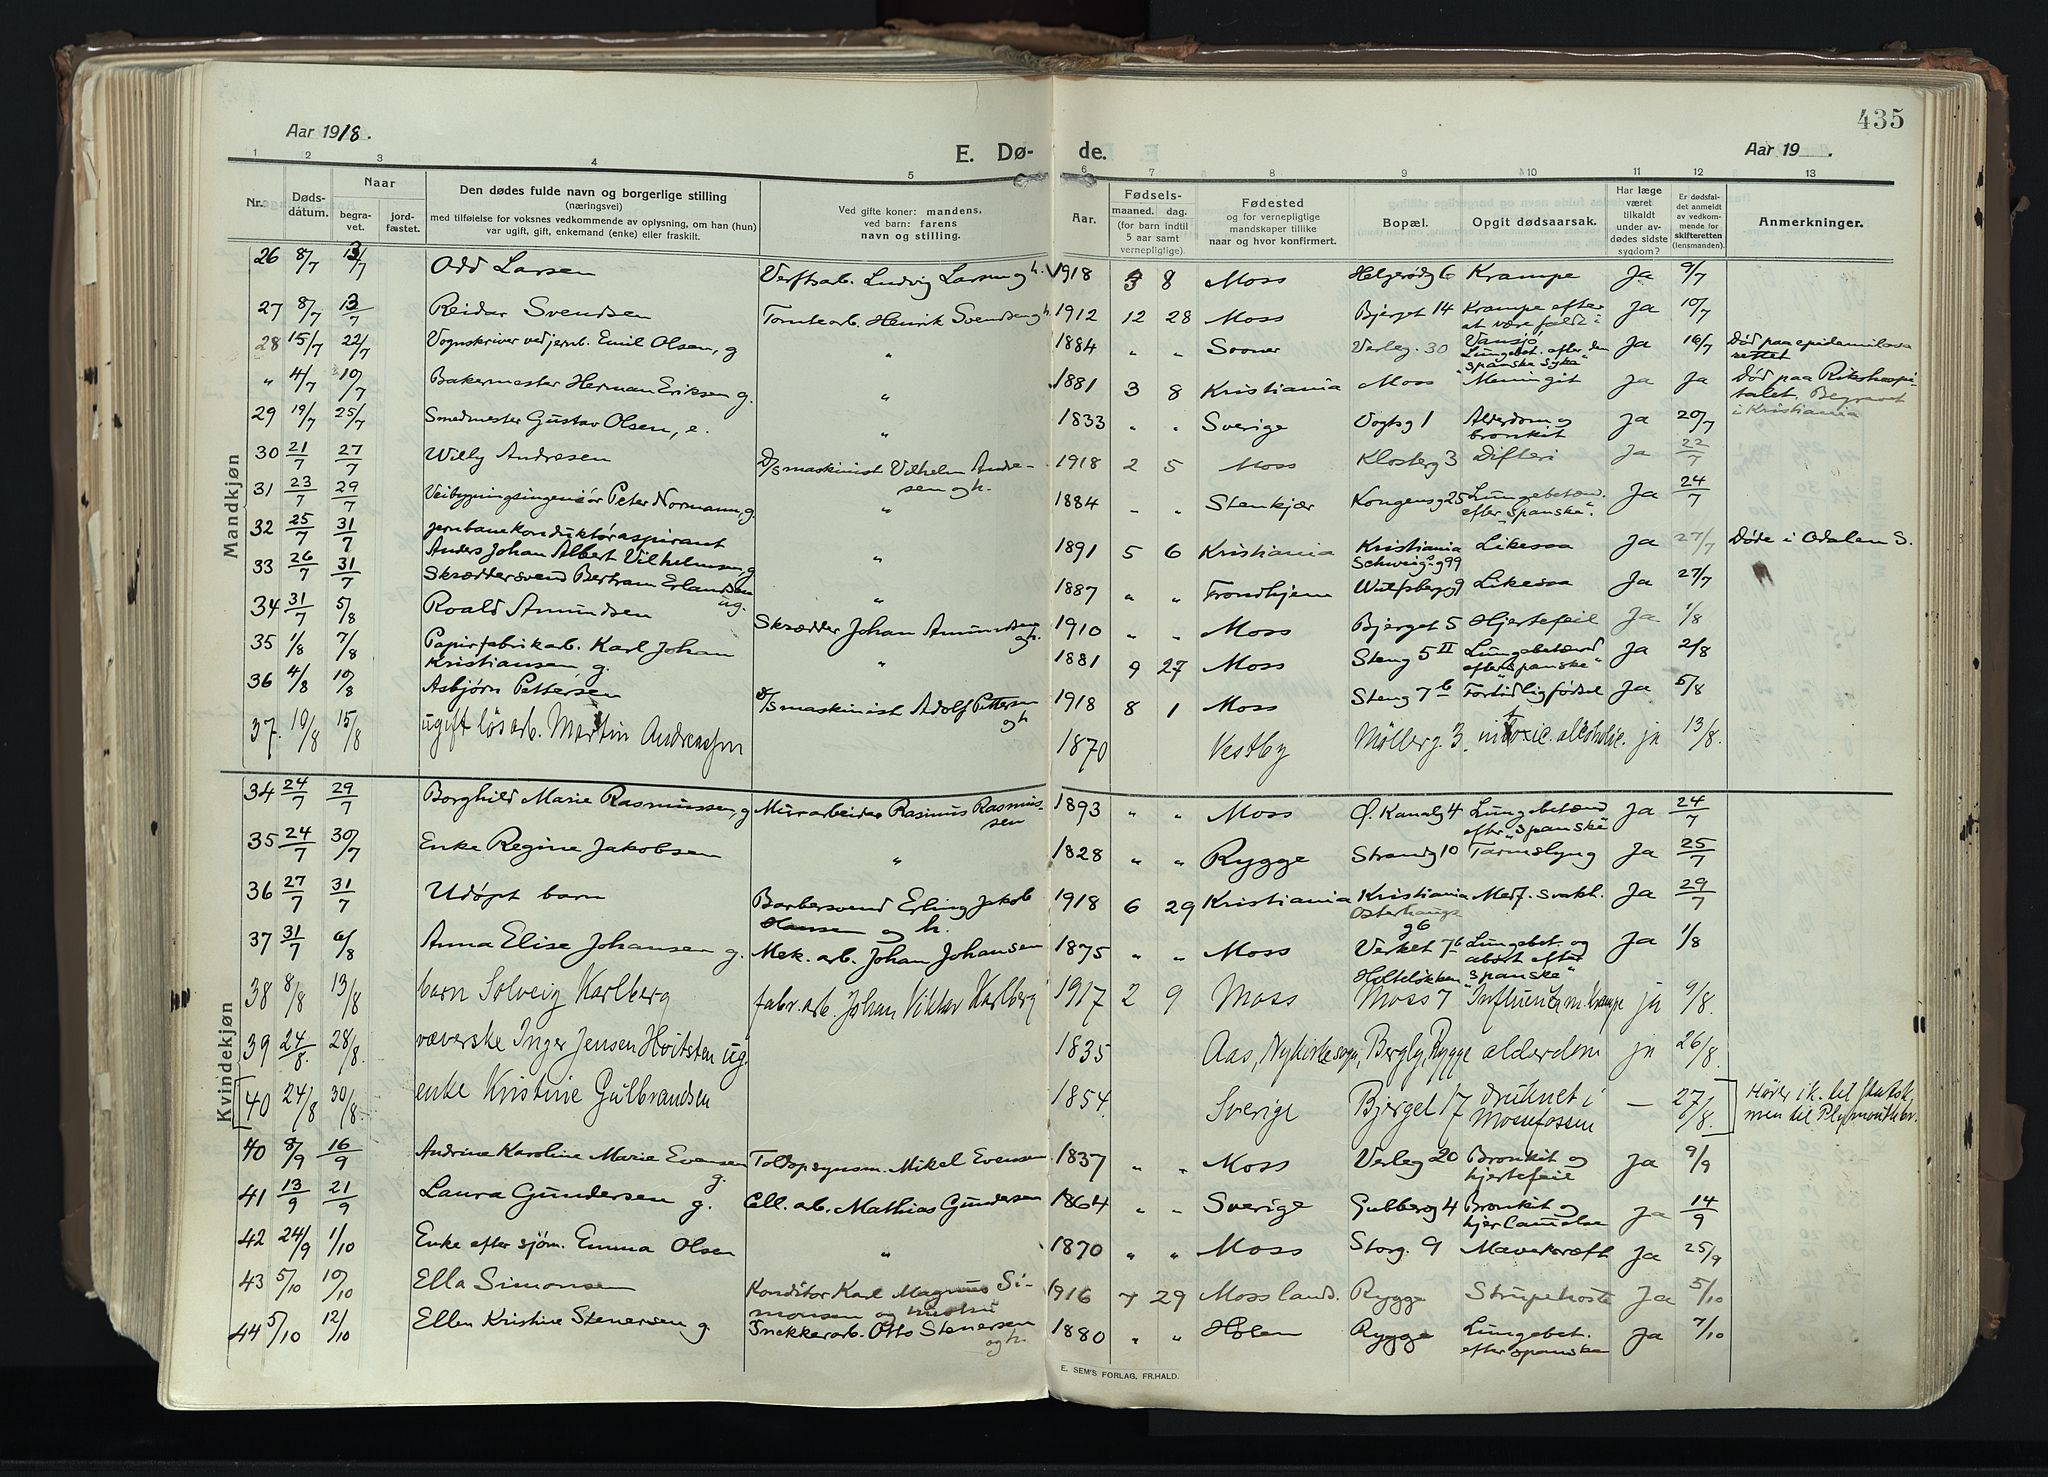 Aar 1918.
435
E. Dø- de.
Aar 19 .
1 2 3 4 5 6 7 8 9 10 11 12 13
Nr. Dødsdatum. Naar begravet. jordfæstet. Den dødes fulde navn og borgerlige stilling (næringsvei) med tilføielse for voksnes vedkommende av oplysning, om han (hun) var ugift, gift, enkemand (enke) eller fraskilt. Ved gifte koner: mandens, ved barn: farens navn og stilling. Aar. Fødsels- maaned. dag. (for barn indtil 5 aar samt vernepligtige). Fødested og for vernepligtige mandskaper tillike naar og hvor konfirmert. Bopæl. Opgit dødsaarsak. Har læge været tilkaldt under avdødes sidste sygdom? Er dødsfaldet anmeldt av vedkommende for skifteretten (lensmanden). Anmerkninger.
Mandkjøn
26 8/7 13/7 Odd Larsen Verftsarb. Ludvig Larsen og h. 1918 3 8 Moss Helgerødg 6 Krampe Ja 9/7
27 8/7 13/7 Reidar Svendsen Tomtearb. Henrik Svendsen og h. 1912 12 28 Moss Bjerget 14 Krampe efter at være faldt i Vansjø Ja 10/7
28 15/7 22/7 Vognskriver ved jernb. Emil Olsen, g " 1884 " " Soner Verleg. 30 Lungebet. efter den "spanske syke" Ja 16/7 Død paa epidemilasarettet
" 4/7 10/7 Bakermester Herman Eriksen g. " 1881 3 8 Kristiania Moss Meningit Ja Ja Død paa Rikshospitalet. Begravet i Kristiania
29 19/7 25/7 Smedmester Gustav Olsen, e. " 1833 " " Sverige Vogtsg 1 Alderdom og bronkit Ja 20/7
30 21/7 27/7 Willy Andresen D/S maskinist Vilhelm Andresen og h. 1918 2 5 Moss Klosterg 3 Difteri Ja 22/7
31 23/7 29/7 Veibygningsingeniør Peter Normann, g. " 1884 - - Stenkjær Kongensg 25 Lungebetænd. efter "spanske". Ja 24/7
32 25/7 31/7 Jernbanekonduktøraspirant Anders Johan Albert Vilhelmsen, g " 1891 5 6 Kristiania Kristiania Schweig.g 99 Likessa Ja 27/7 Døde i Odalen S.
33 26/7 31/7 Skræddersvend Bertram Erlandsen ug. " 1887 " " Trondhjem Wulfsbergg 9 Likessa Ja 27/7
34 31/7 5/8 Roald Amundsen Skrædder Johan Amundsen og h. 1910 " " Moss Bjerget 5 Hjertefeil Ja 1/8
35 1/8 7/8 Papirfabrikarb. Karl Johan Kristiansen g. " 1881 9 27 Moss Steng 5 II Lungebetænd efter "spanske" Ja 2/8
36 4/8 10/8 Asbjørn Pettersen D/S maskinist Adolf Pettersen og h. 1918 8 1 Moss Steng 7 b Fortidlig fødsel Ja 5/8
37. 10/8 15/8 ugift løsarb. Martin Andreassen 1870 Vestby Møllerg. 3. intoxic. alcoholic. ja 13/8.
Kvindekjøn
34 24/7 29/7 Borghild Marie Rasmussen, g Murarbeider Rasmus Rasmussen 1893 " " Moss Ø. Kanalg 4 Lungebetænd efter "spanske" Ja 24/7
35 24/7 30/7 Enke Regine Jakobsen " 1828 " " Rygge Strandg 10 Tarmslyng Ja 25/7
36 27/7 31/7 Udøpt barn Barbersvend Erling Jakob Hansen og h. 1918 6 29 Kristiania Kristiania Osterhausg 6 Medf. svakh. Ja 29/7
37 31/7 6/8 Anna Elise Johansen g. Mek. arb. Johan Johansen 1875 " " Moss Verket 76 Lungebet. og abort efter "spanske" Ja 1/8
38 8/8 13/8 barn Solveig Karlberg fabr. arb. Johan Viktor Karlberg 1917 2 9 Moss Holteløkken Moss 7 Influenza m. krampe ja 9/8.
39 24/8. 28/8. væverske Inger Jensen Høitsten ug. 1835 Aas, Nykirkesogn, Bergly, Rygge alderdom ja 26/8.
[40 24/8 30/8. enke Kristine Gulbrandsen 1854. Sverige Bjerget 17 druknet i Mossefossen — 27/8.] Hører ik. til statsk. men til Plymouthbr.
40 8/9 16/9 Andrine Karoline Marie Evensen g. Toldopsynsm. Mikel Evensen 1837 " " Moss Verleg 20 Bronkit og hjertefeil Ja 9/9
41 13/9 21/9 Laura Gundersen g. Cell. arb. Mathias Gundersen 1864 " " Sverige Gubberog 4 Bronkit og hjerlamelse Ja 14/9
42 24/9 1/10 Enke efter sjøm. Emma Olsen " 1870 " " Moss Storg. 9 Mavekræft Ja 25/9
43 5/10 10/10 Ella Simonsen Konditor Karl Magnus Simonsen og hustru 1916 7 29 Moss lands. Rygge Strupehoste Ja 5/10
44 5/10 12/10 Ellen Kristine Stenersen g. Snekkerarb. Otto Stenersen og h. 1880 " " Hølen Rygge Lungebet. efter spanske Ja 7/10
E. SEM'S FORLAG, FR.HALD.